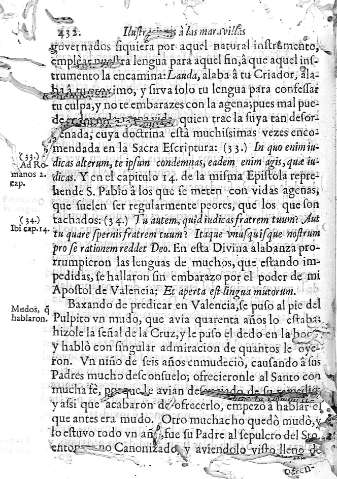 432. Ilustraciones à las maravillas
governados siquiera por aquel natural instrumento,
empléar nuestra lengua para aquel fin, à que aquel ins-
trumento la encamina: Lauda, alaba â tu Criador, ala-
ba â tu proximo, y sirva solo tu lengua para confessar
tu culpa, y no te embarazes con la agena; pues mal pue-
de vida, quien trae la suya tan desor-
denada; cuya doctrina está muchissimas vezes enco-
mendada en la Sacra Escriptura: (33.) In quo enim iu-
(33.)
Ad Ro-
manos 2.
cap.
dicas alterum, te ipsum condemnas, eadem enim agis, quæ iu-
dicas. Y en el capitulo 14. de la misma Epistola repre-
hende S. Pablo â los que se meten con vidas agenas,
que suelen ser regularmente peores, que los que son
tachados: (34.) Tu autem, quid iudicas fratrem tuum? Aut
(34.)
Ibi cap. 14.
tu quare spernis fratrem tuum? Itaque vnusquisque nostrum
pro se rationem reddet Deo. En esta Divina alabanza pro-
rrumpieron las lenguas de muchos, que estando im-
pedidas, se hallaron sin embarazo por el poder de mi
Apostol de Valencia; Et aperta est lingua mutorum.
Baxando de predicar en Valencia, se puso al pie del
Medos, q̃
hablaron.
Pulpito vn mudo, que avia quarenta años lo estaba
hizole la señal de la Cruz, y le puso el dedo en la boca,
y hablò con singular admiracion de quantos le oye-
ron. Vn niño de seis años enmudeciò, causando â sus
Padres mucho desconsuelo; ofrecieronle al Santo con
mucha fè, porque le avian de su
y assi que acabaron de ofrecerlo, empezò a hablar el
que antes era mudo. Otro muchacho quedò mudo, y
lo estuvo todo vn año, fue su Padre al sepulcro del Sto.
entonces no Canonizado, y aviendolo visto lleno de